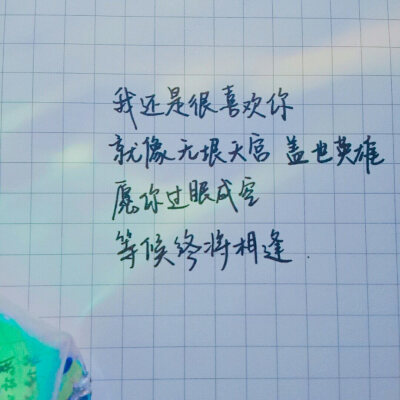 我还是很喜欢你
就像无垠天宫 盖世英雄
愿你过眼成空
等候终将相逢